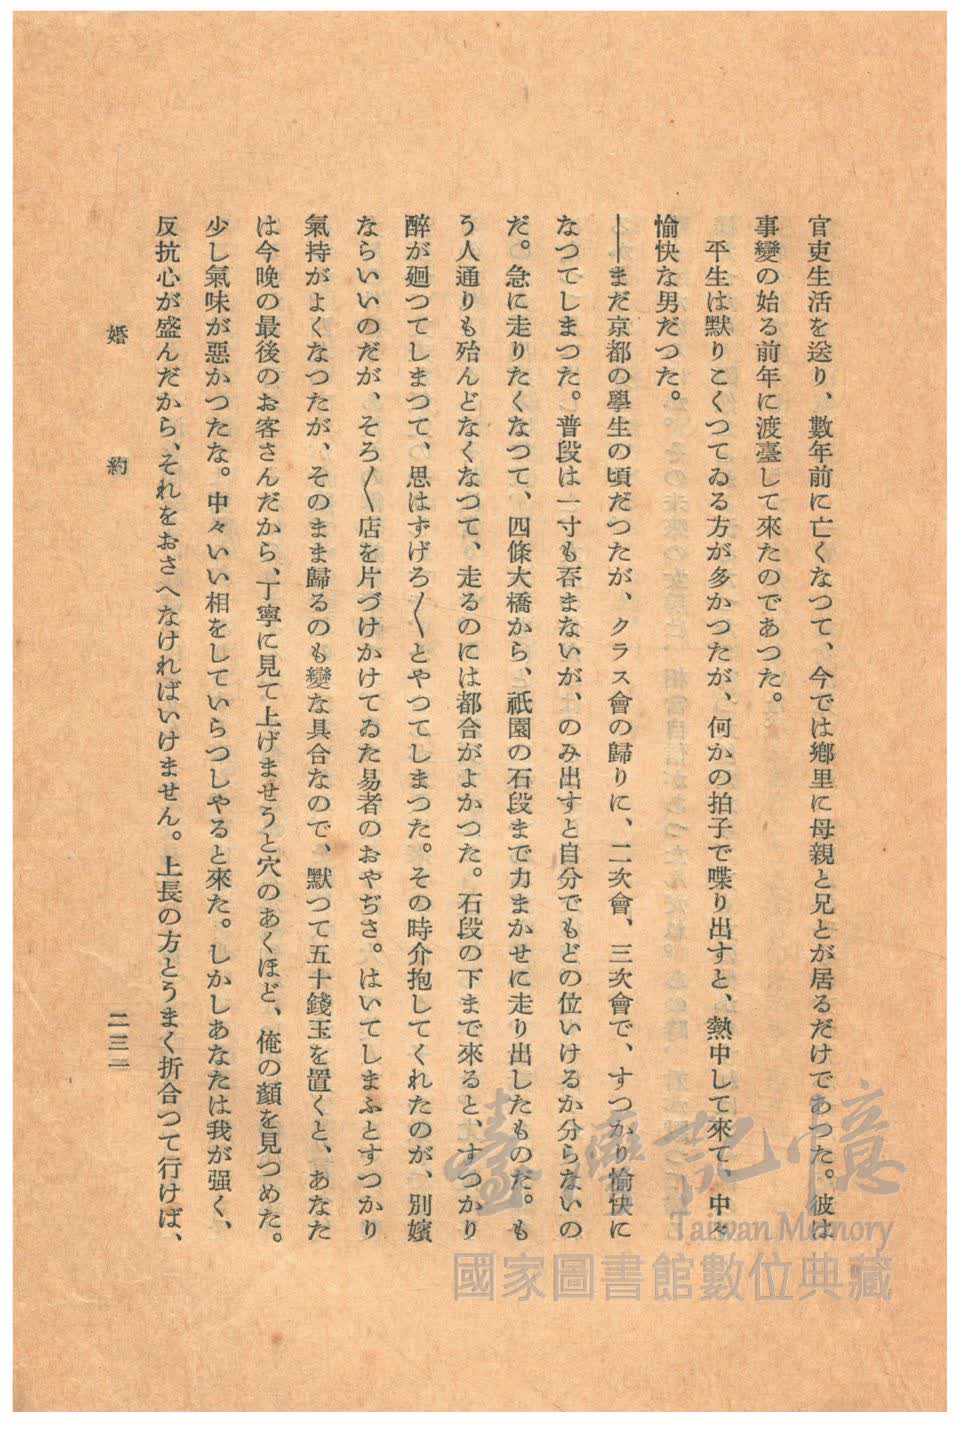 官吏生活を送り、數年前に亡くなつて、今では鄕里に母親と兄とが居るだけであつた。彼は
事變の始る前年に渡臺して來たのであつた。
平生は默りこくつてゐる方が多かつたが、何かの拍子で喋り出すと、熱中して來て、中々
愉快な男だつた。
――まだ京都の學生の頃だつたが、クラス會の歸りに、二次會、三次會で、すつかり愉快に
なつてしまつた。普段は一寸も呑まないが、のみ出すと自分でもどの位いけるか分らないの
だ。急に走りたくなつて、四條大橋から、祇園の石段まで力まかせに走り出したものだ。も
う人通りも殆んどなくなつて、走るのには都合がよかつた。石段の下まで來ると、すつかり
醉が廻つてしまつて、思はずげろ〳〵とやつてしまつた。その時介抱してくれたのが、別嬪
ならいいのだが、そろ〳〵店を片づけかけてゐた易者のおやぢさ。はいてしまふとすつかり
氣持がよくなつたが、そのまま歸るのも變な具合なので、默つて五十錢玉を置くと、あなた
は今晩の最後のお客さんだから、丁寧に見て上げませうと穴のあくほど、俺の顏を見つめた。
少し氣味が惡かつたな。中々いい相をしていらつしやると來た。しかしあなたは我が强く、
反抗心が盛んだから、それをおさへなければいけません。上長の方とうまく折合つて行けば、
婚約
二三一
臺灣記憶
Taiwan Memory
國家圖書館數位典藏